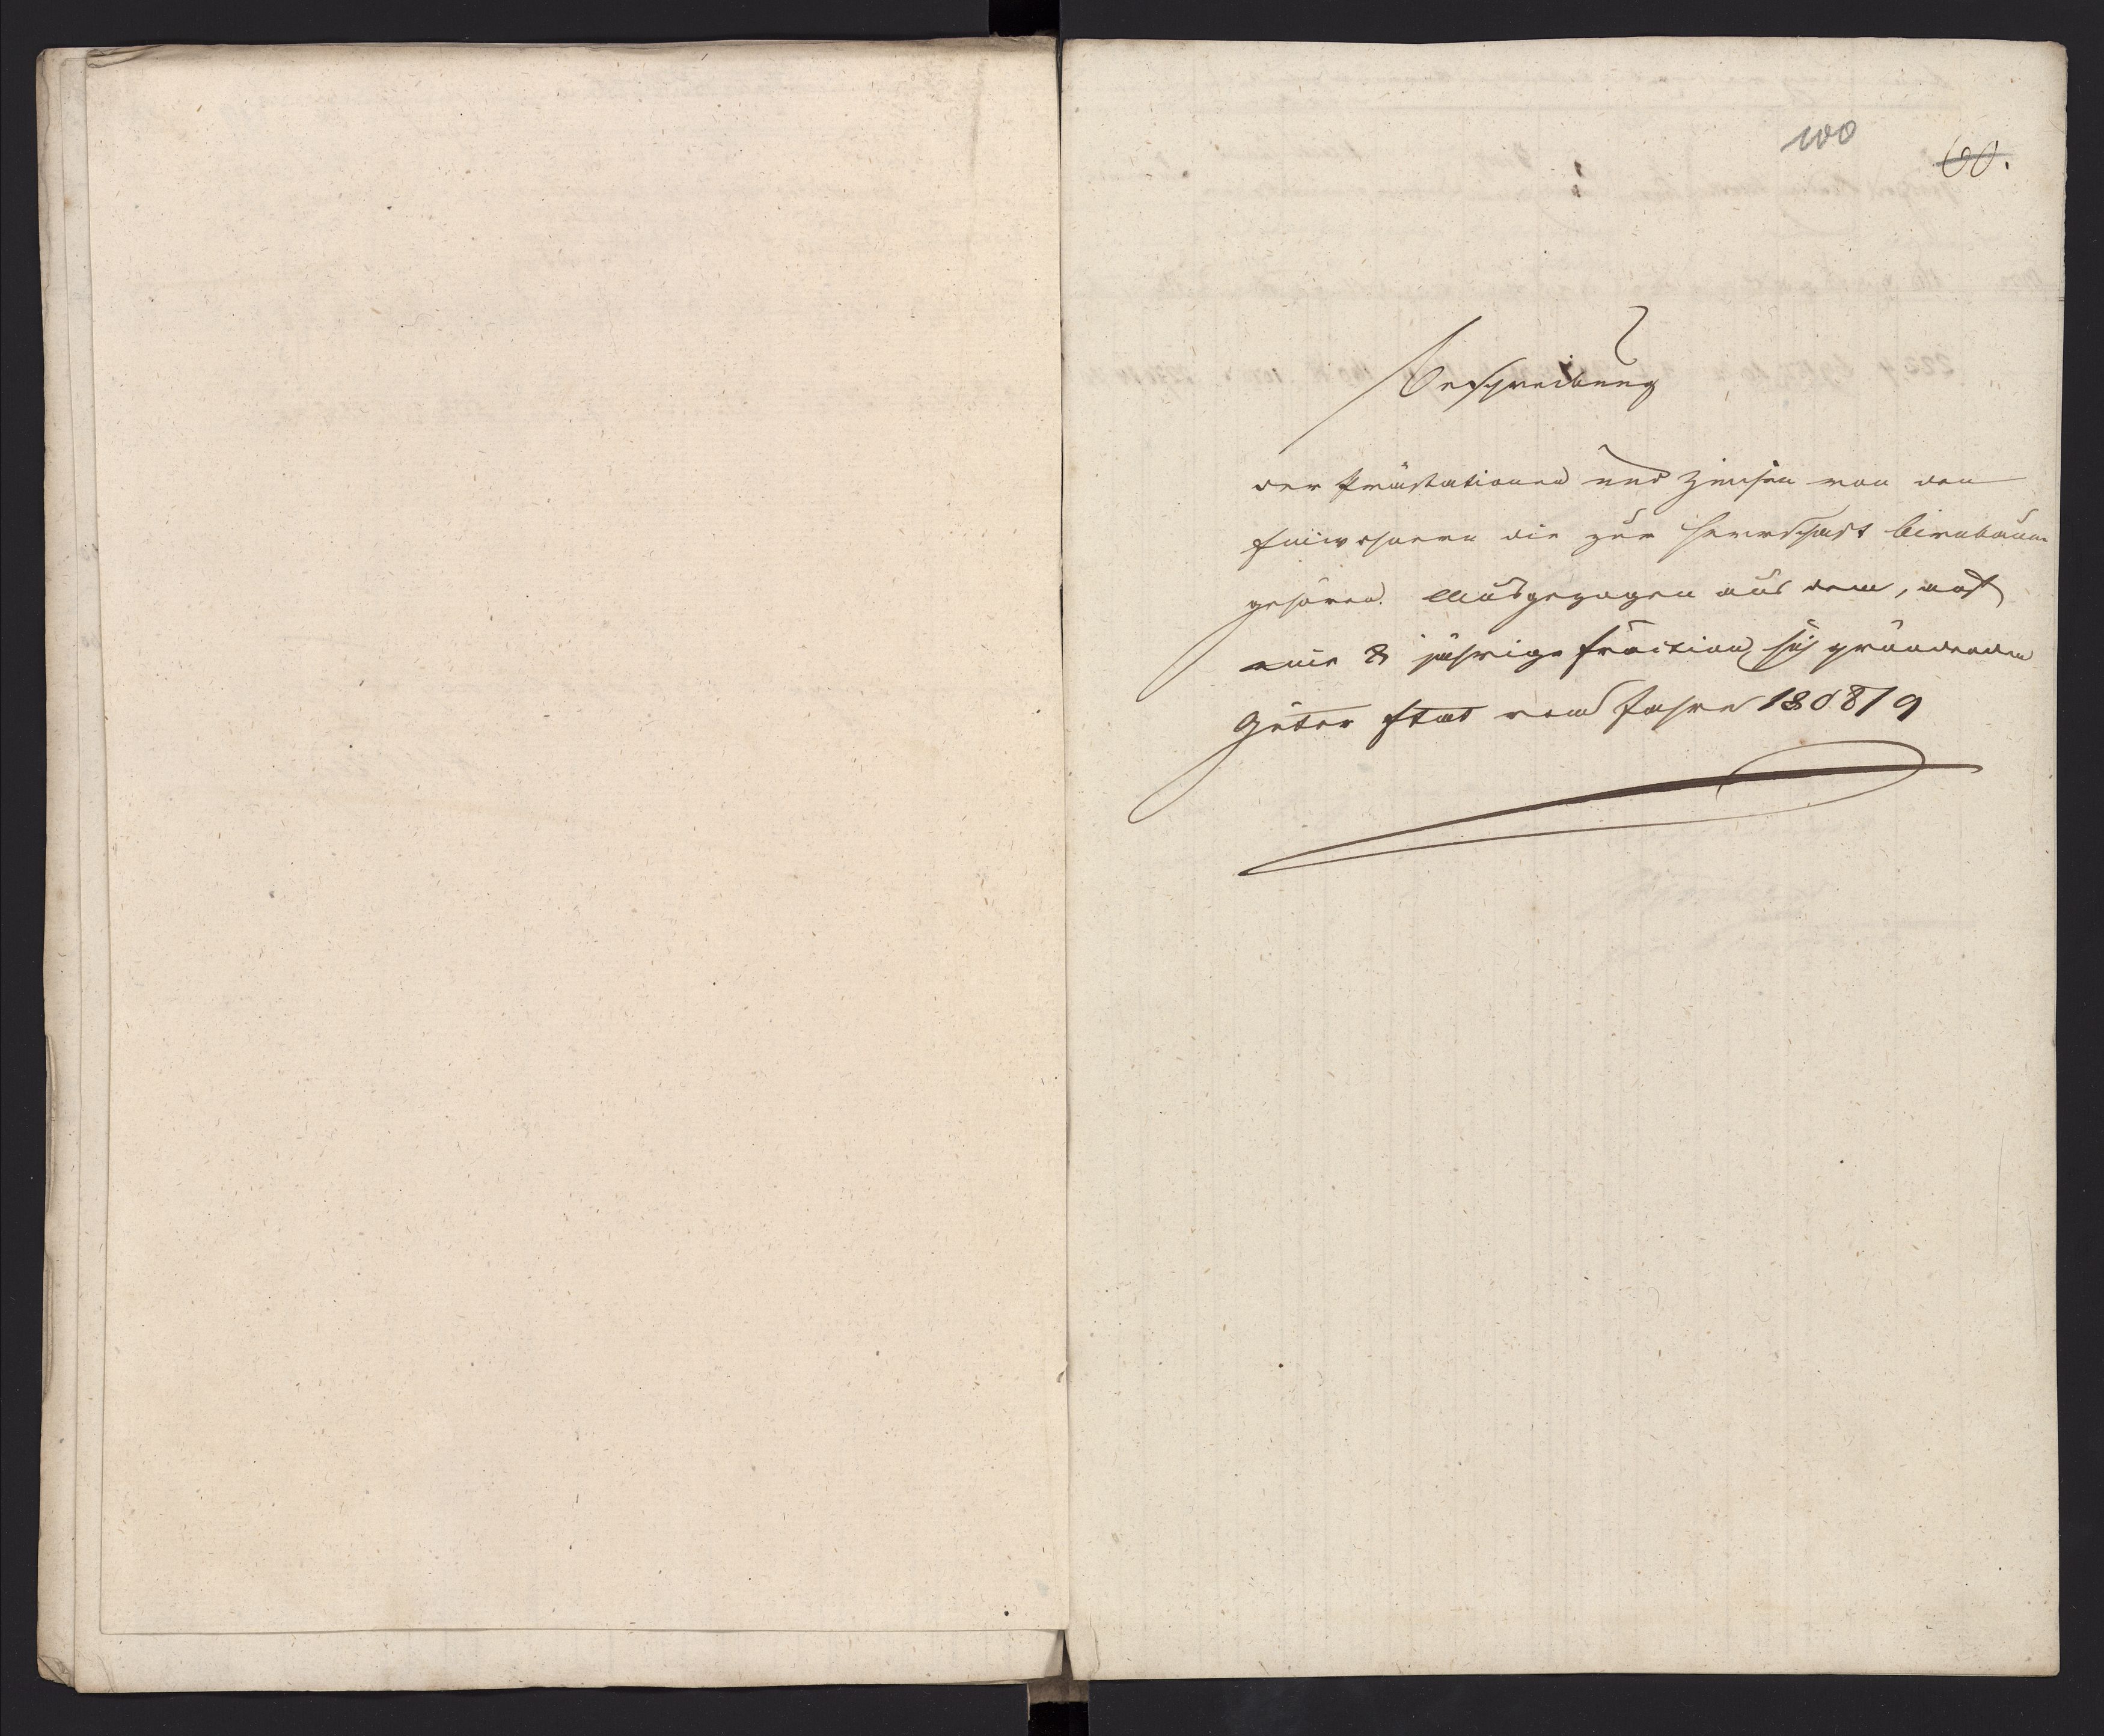 100
60.
Beschreibung
der Prästationen und Zinsen von den
Einwohnern die zur Herrschaft Birnbaum
gehören. Ausgezogen aus dem, auf
eine 8 jährige Fraction sich gründenden
Güter Etat vom Jahre 1808/9